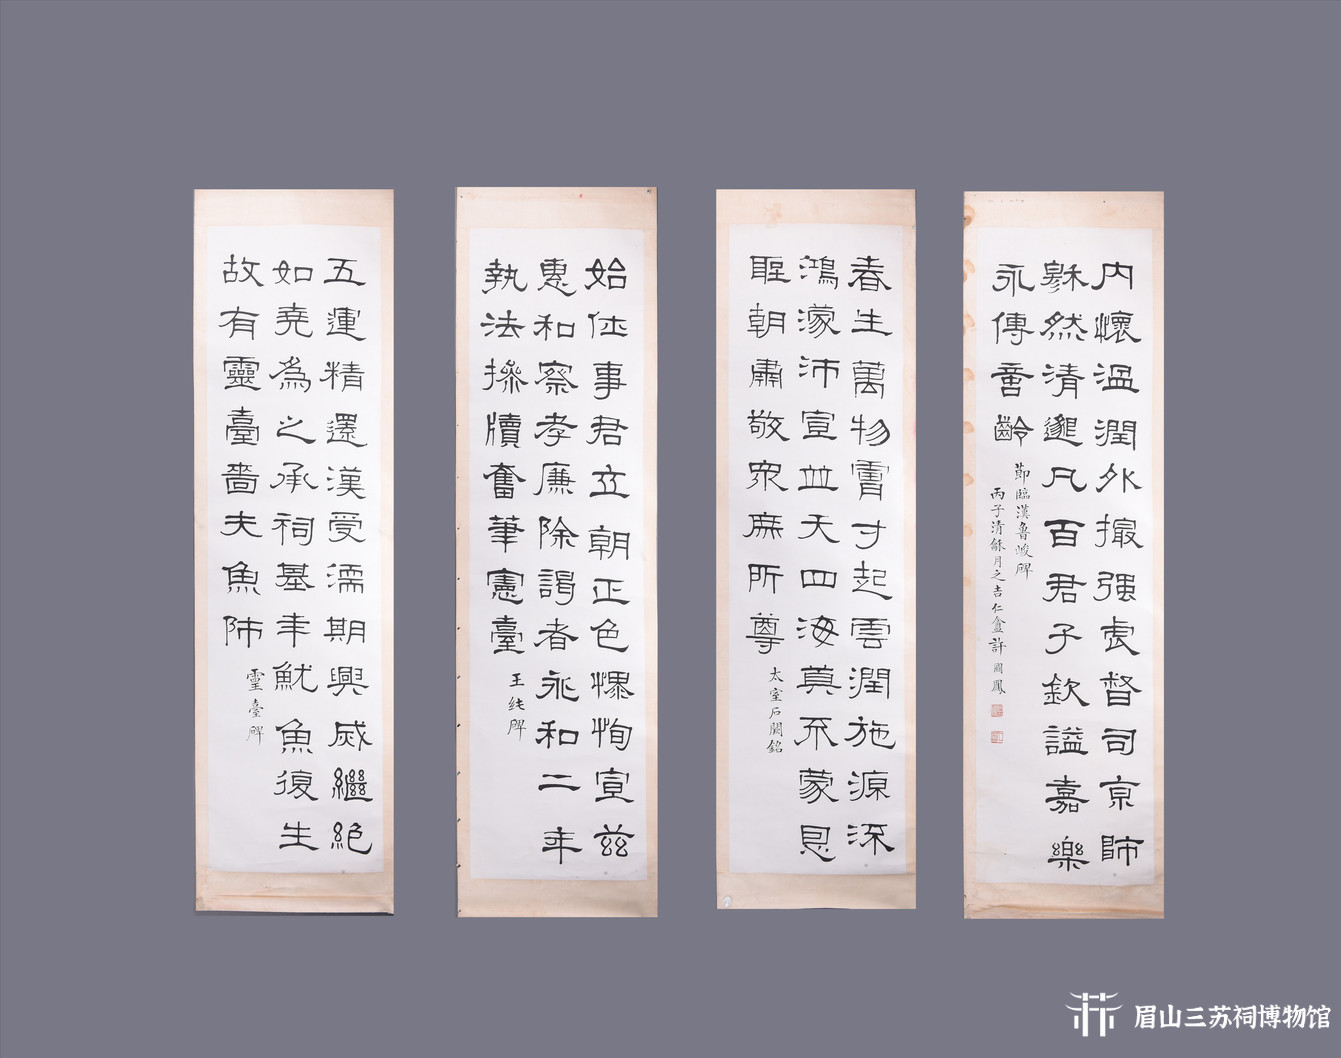 内懷溫潤外撮强虐督司京師
穆然清邈凡百君子欽謚嘉樂
永傳啻齡
節臨漢魯峻碑
丙子清龢月之吉仁盦許國鳳
春生萬物膚寸起雲潤施源深
鴻濛沛宣並天四海莫不蒙恩
聖朝肅敬衆庶所尊
太室石闕銘
始仕事君立朝正色慓恂宣兹
惠和察孝廉除謁者永和二年
執法操牘奮筆憲臺
王純碑
五運精還漢受濡期興滅繼絕
如堯爲之承祠基年魷魚復生
故有靈臺嗇夫魚師
靈臺碑
眉山三苏祠博物馆